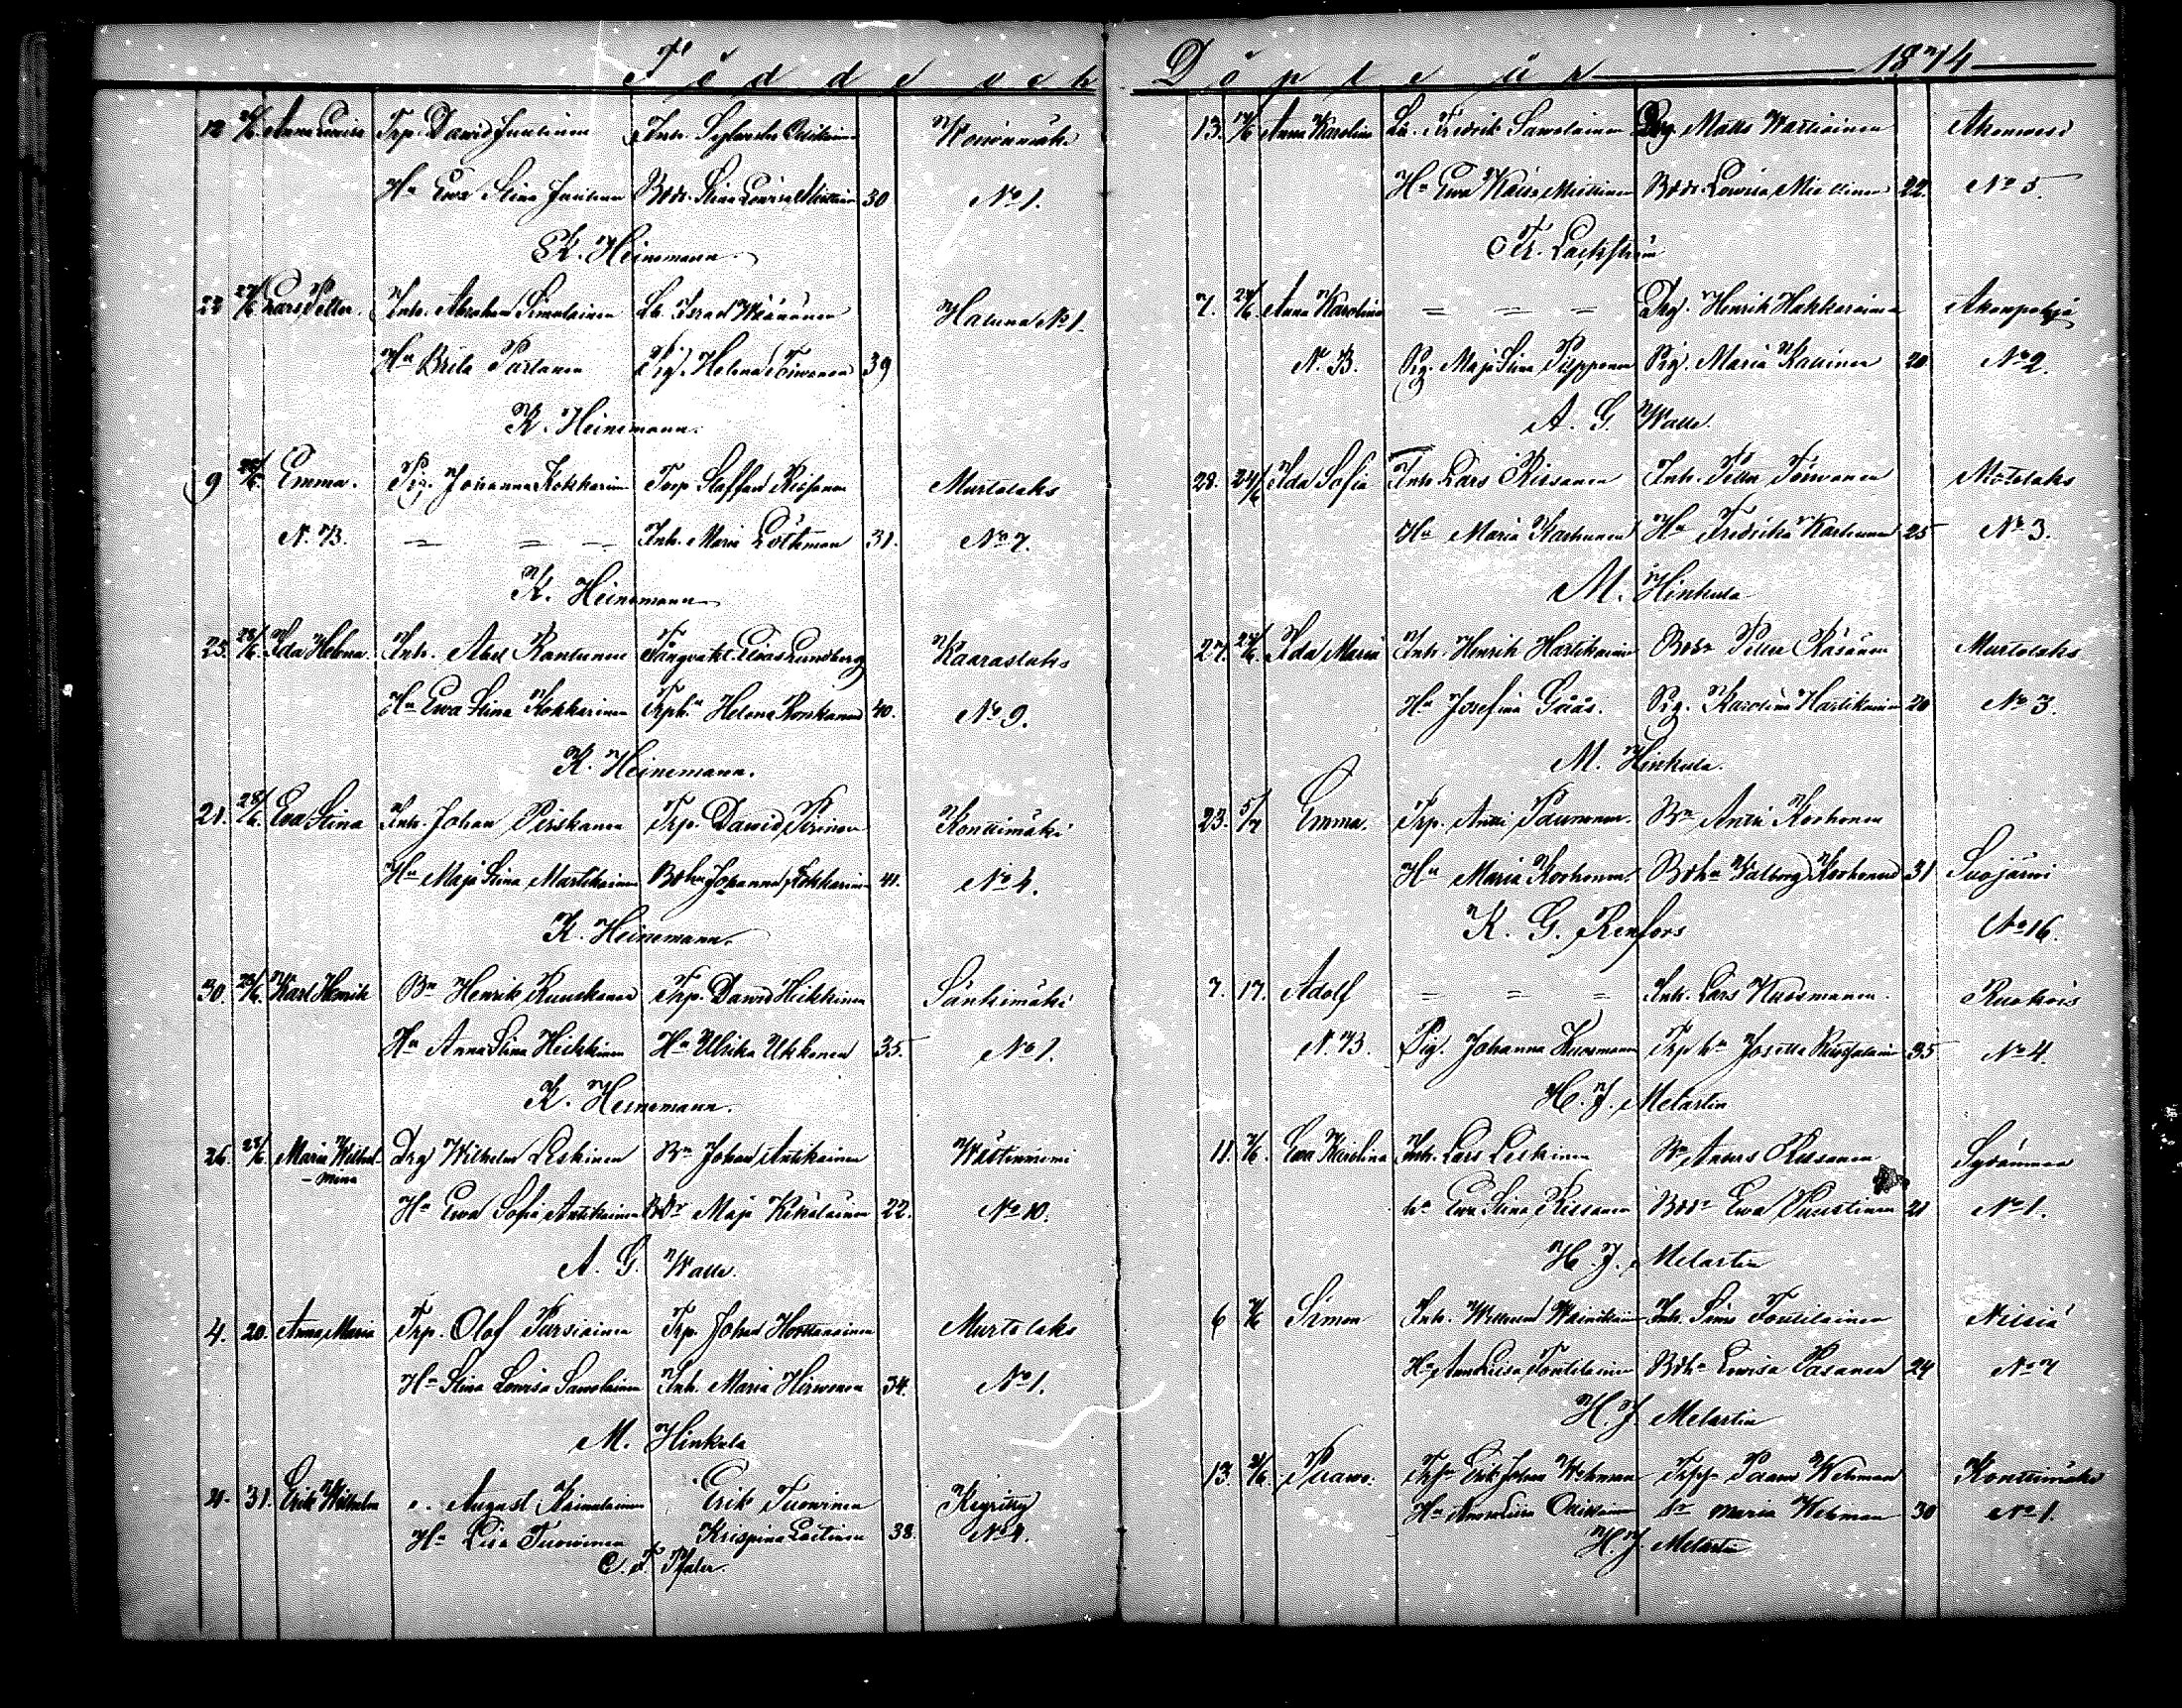 Födde och
12 Anna Lovisa Trp. David Juutinen Inh. Sylvester
Hu Ewa Stina Juutinen Bdr. Stina Lovisa Miettinen 30 No 1.
K. Heinemann.
22 27/6 Lars Petter. Inh. Abraham Simolainen Lb. Israel Wäänänen Haluna No 1.
Hu Brita Partanen Pig. Helena Toivanen 39
K. Heinemann.
9 28/6 Emma. Pig. Johanna Kokkarinen Torp Staffan Rissanen Murtolaks
N. B. = = = Inh. Maria Löthman 31. No 7.
K. Heinemann
25. 28/6 Ida Helena. Inh. Abel Rantunen Fångvakt. Elias Lundberg Kaaraslaks
Hu Ewa Stina Kokkarinen Trph. Helena Koskanen 40. No 9.
K. Heinemann.
21. 28/6 Eva Stina Inh. Johan Pirskanen Trp. David Kirinen Konttimäki
Hu Maja Stina Martikainen Bdhu Johanna Kokkarinen 41. No 4.
K. Heinemann.
30. 28/6 Karl Henrik Bn Henrik Ruuskanen Trp. David Heikkinen Sänkimäki
Hu Anna Stina Heikkinen Hu Ulrika Ukkonen 35. No 1.
K. Heinemann.
26. 28/6 Maria Wilhel-
mina Drg Wilhelm Leskinen Bn Johan Antikainen Wästinniemi
Hu Ewa Sofia Antikainen Bdr Maja Kekäläinen 22. No 10.
A. G. Walle.
4. 20. Anna Maria Trp. Olof Pursiainen Trp. Johan Murtolaks
Hu Stina Lovisa Savolainen Inh. Maria Hirvonen 34. No 1.
M. Hinkula
4. 31. Erik Wilhelm August Erik Tuovinen
Hu Lisa Tuovinen Krispina Laitinen 38. No 4.
C. F. Pfaler.
Döpte år 1874
13. Anna Karolina Lb. Fredrik Savolainen Drg. Matts Wartiainen Akonvesi
Hu Ewa Kaisa Miettinen Bdr. Lovisa Miettinen 22. No 5.
Fr. Lackström
7. 24/6 Anna Karolina = = = Drg. Henrik Hakkarainen Akonpohja
N. B. Pig. Maja Stina Pipponen Pig. Maria Kallinen 20 No 2.
A. G. Walle.
28. 24/6 Ida Sofia Inh. Lars Rissanen Inh. Petter Törvonen Murtolaks
Hu Maria Karhunen Hu Fredrika Karhunen 25 No 3.
M. Hinkula
27. 24/6 Ida Maria Inh. Henrik Hartikainen Bdr Petter Räsänen Murtolaks
Hu Josefina Gåås. Pig. Karolina Hartikainen 20 No 3.
M. Hinkula.
23. 5/7 Emma. Trp. Antti Paunonen. Bn Antti Korhonen
Hu Maria Korhonen. Bdhu Walborg Korhonen 31 Suojärvi
K. G. Renfors No 16.
7. 17. Adolf = = = Inh. Lars Kuosmanen.
N. B. Pig. Johanna Kuosmanen Trp hu Josefta 35 No 4.
H. J. Melartin
11. Ewa Karolina Inh. Lars Leskinen Bn Anders Rissanen Sydänmaa
hu Ewa Stina Rissanen Bdr Ewa Puustinen 21 No 1.
H. J. Melartin
6 Simon Inh. Wainikainen Inh. Simo Toutilainen Nilsiä
Hu Anna Lisa Toutilainen Bdhu Lovisa Pasanen 24 No 7
H. J. Melartin
13. Paavo. Trp Erik Johan Wehman Trp Paavo Wehman Konttimäki
Hu Anna Lisa hu Maria Wehman 30 No 1.
H. J. Melartin